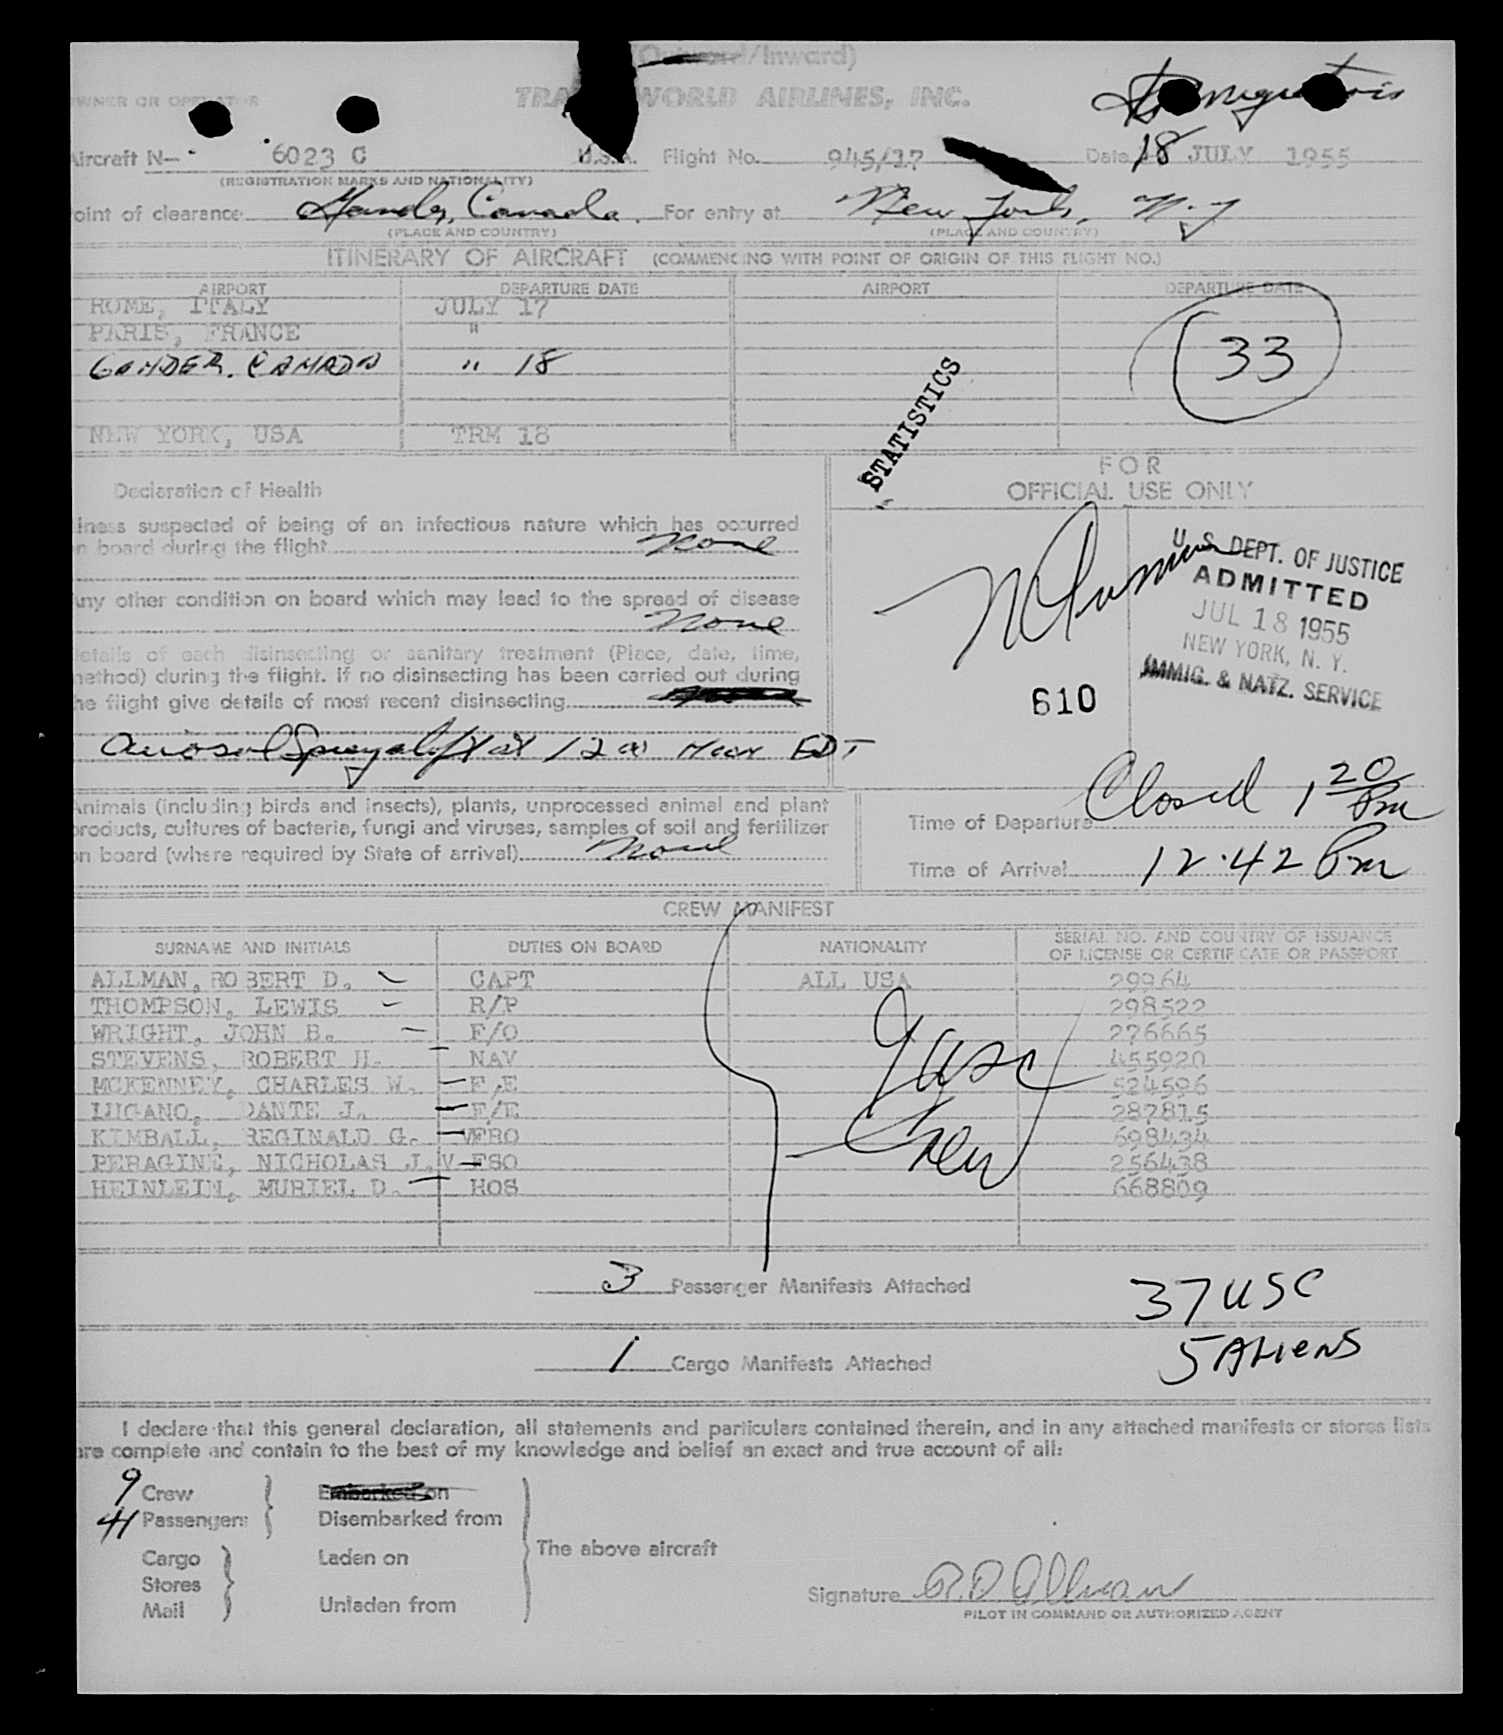 (Outward/Inward)
OWNER OR OPERATOR TRANS WORLD AIRLINES, INC.
Aircraft N- 6023 C U.S.A. Flight No. 945/17 Date 18 JULY 1955
(REGISTRATION MARKS AND NATIONALITY)
oint of clearance Gander, Canada. For entry at New York, N.Y
(PLACE AND COUNTRY) (PLACE AND COUNTRY)
ITINERARY OF AIRCRAFT (COMMENCING WITH POINT OF ORIGIN OF THIS FLIGHT NO.)
AIRPORT DEPARTURE DATE AIRPORT DEPARTURE DATE
ROME, ITALY JULY 17
PARIS, FRANCE "
GANDER. CANADA " 18
33
NEW YORK, USA TRM 18
STATISTICS
FOR
OFFICIAL USE ONLY
Declaration of Health
llness suspected of being of an infectious nature which has occurred
n board during the flight None
Any other condition on board which may lead to the spread of disease
None
etails of each disinsecting or sanitary treatment (Place, date, time,
method) during the flight. If no disinsecting has been carried out during
he flight give details of most recent disinsecting
Aerosol Spray aloft at 12 Noon EDT
U.S. DEPT. OF JUSTICE
ADMITTED
JUL 18 1955
NEW YORK, N. Y.
IMMIG. & NATZ. SERVICE
610
Animals (including birds and insects), plants, unprocessed animal and plant
products, cultures of bacteria, fungi and viruses, samples of soil and fertilizer
on board (where required by State of arrival) None
Time of Departure Closed 1 20 Pm
Time of Arrival 12.42 Pm
CREW MANIFEST
SURNAME AND INITIALS DUTIES ON BOARD NATIONALITY SERIAL NO. AND COUNTRY OF ISSUANCE
OF LICENSE OR CERTIFICATE OR PASSPORT
ALLMAN, ROBERT D. CAPT ALL USA 29964
THOMPSON, LEWIS R/P 298522
WRIGHT, JOHN B. F/O 276665
STEVENS, ROBERT H. NAV 455920
MCKENNEY, CHARLES W. F/E 524596
LUGANO, DANTE J. F/E 287815
KIMBALL, REGINALD G. FRO 698434
PERAGINE, NICHOLAS J. FSO 256438
HEINLEIN, MURIEL D. HOS 668809
9 USC
Crew
3 Passenger Manifests Attached
37 USC
1 Cargo Manifests Attached
5 ALIENS
I declare that this general declaration, all statements and particulars contained therein, and in any attached manifests or stores lists
are complete and contain to the best of my knowledge and belief an exact and true account of all:
9 Crew Embarked on
41 Passengers Disembarked from
The above aircraft
Cargo Laden on
Stores
Mail Unladen from
Signature R.D Allman
PILOT IN COMMAND OR AUTHORIZED AGENT